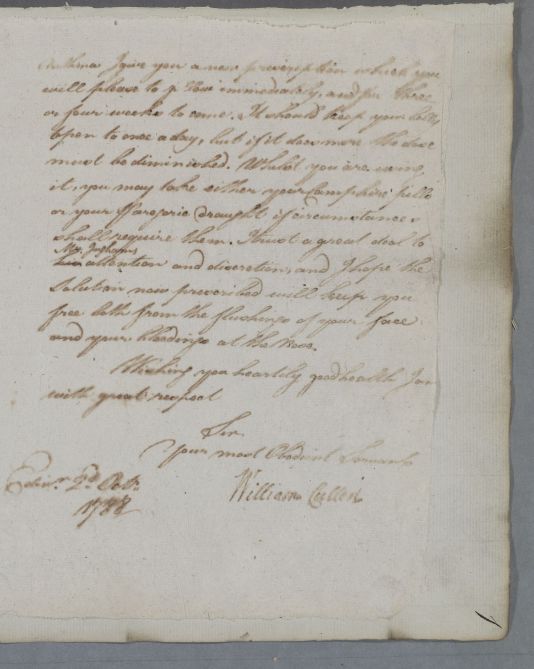 Asthma I give you a new prescription which you
will please to follow immediately, and for three
or four weeks to come. It should keep your belly
open to once a day, but if it does more the dose
must be diminished. Whilst you are using
it, you may take either your Camphire pills
or your Paregoric draught if circumstances
shall require them. I trust a great deal to
Mr. Ingham's
attention and discretion, and I hope the
Solution now prescribed will keep you
free both from the flushings of your face
and your bleedings at the Nose.
Wishing you heartily good health I am
with great respect
Sir
Your most Obedient Servant
William Cullen
Edinr. 2d Octr.
1788